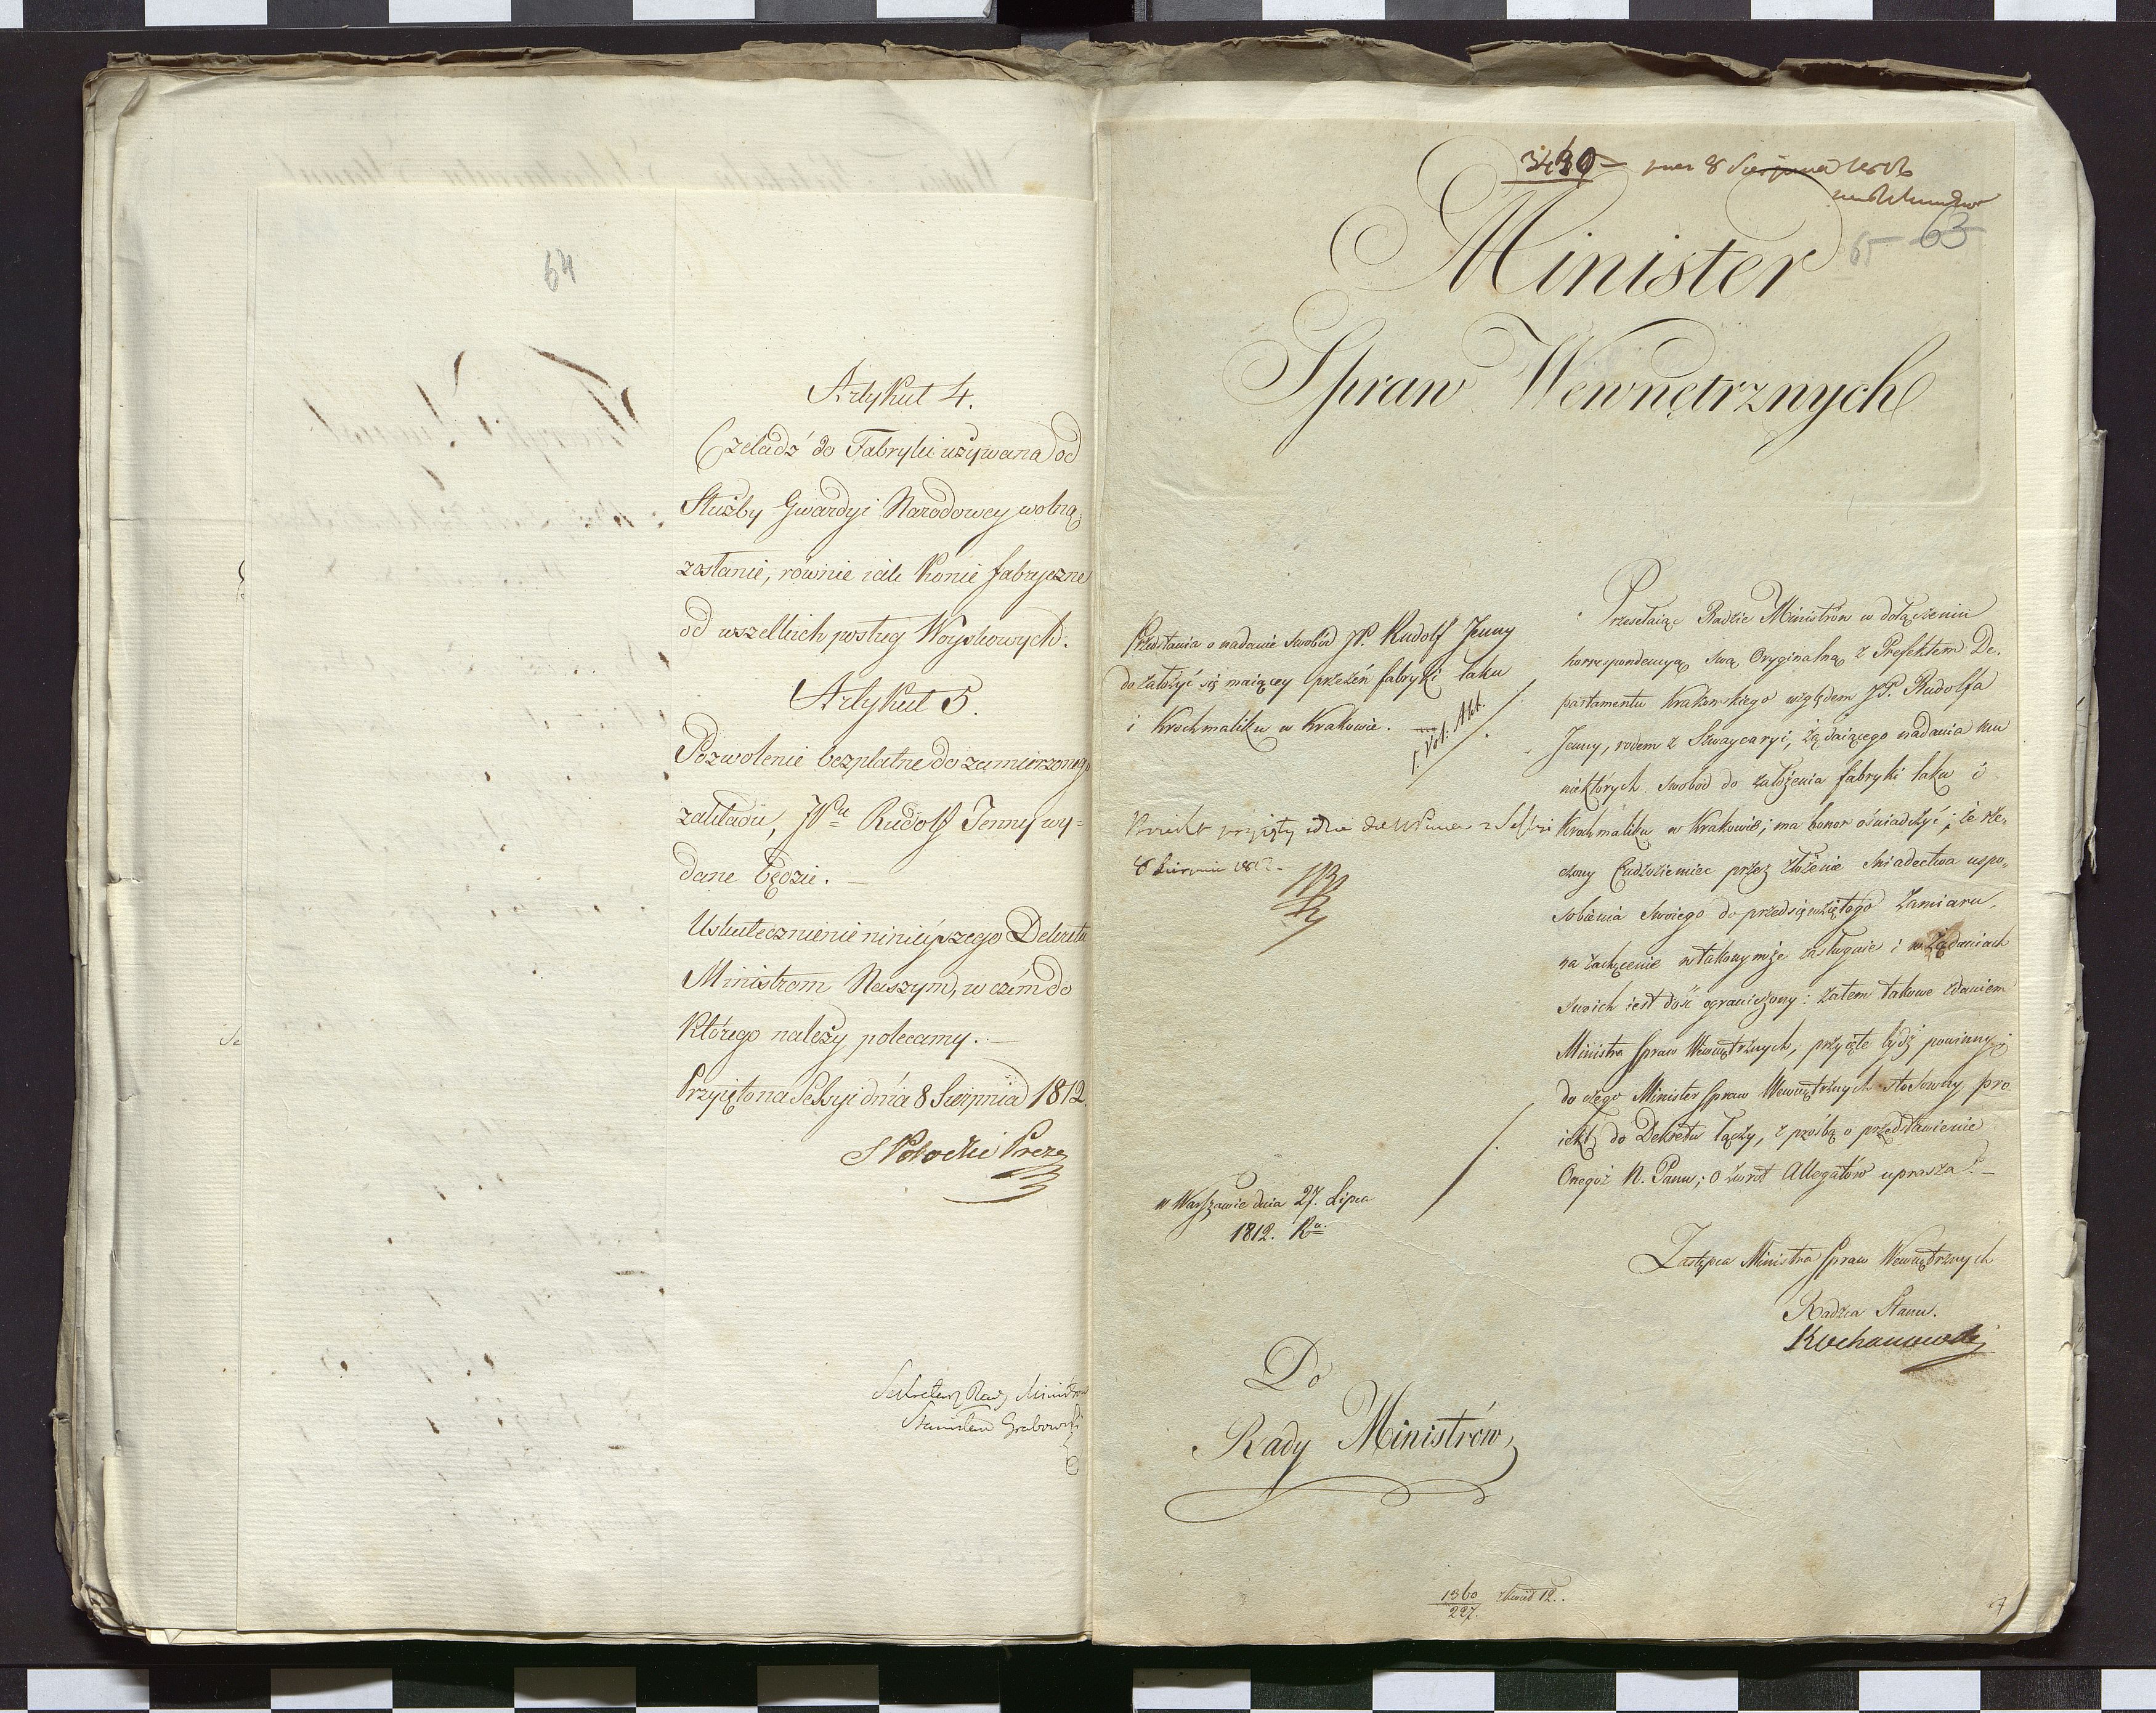 64
Artykuł 4.
Czeladź do Fabryki używana od
Służby Gwardyi Narodowey wolną
zostanie, równie iak Konie fabryczne
od wszelkich posług Woyskowych.
Artykuł 5.
Pozwolenie bezpłatne do zamierzonego
zakładu, JPu Rudolf Jenny wy-
dane będzie. —
Uskutecznienie ninieyszego Dekretu
Ministrom Naszym, w czém do
którego należy polecamy. —
Przyięto na Sessyi dnia 8 Sierpnia 1812.
S Potocki Prezes
Sekretarz Rady Ministrów
Stanisław Grabowski
3430 8 Sierpnia
65 63
Minister
Spraw Wewnętrznych
Przedstawia o nadanie swobód JP. Rudolf Jenny
do założyć się maiącey przezeń fabryki laku
i Krochmaliku w Krakowie.
Proiekt przyięty
8 Sierpnia 1812.
w Warszawie dnia 27. Lipca
1812. Ru.
Do
Rady Ministrów
Przesełaiąc Radzie Ministrów w dołączeniu
korrespondencyą swą Oryginalną z Prefektem De-
partamentu Krakowskiego względem JP. Rudolfa
Jenny, rodem z Szwaycaryi, żądaiącego nadania mu
niektórych swobód do założenia fabryki laku i
Krochmaliku w Krakowie; ma honor oświadczyć; że rze-
czony Cudzoziemiec przez złożenie świadectwa uspo-
sobienia swoiego do przedsięwziętego zamiaru,
na zachęcenie w takowymże zasługuie i w żądaniach
swoich iest dość ograniczony: zatem takowe zdaniem
Ministra Spraw Wewnętrznych, przyięte bydź powinny;
do czego Minister Spraw Wewnętrznych stosowny pro-
iekt do Dekretu łączy, z prośbą o przedstawienie
Onegoż N. Panu; o zwrot Allegatów uprasza. —
Zastępca Ministra Spraw Wewnętrznych
Radzca Stanu.
Kochanowski
1360
227.